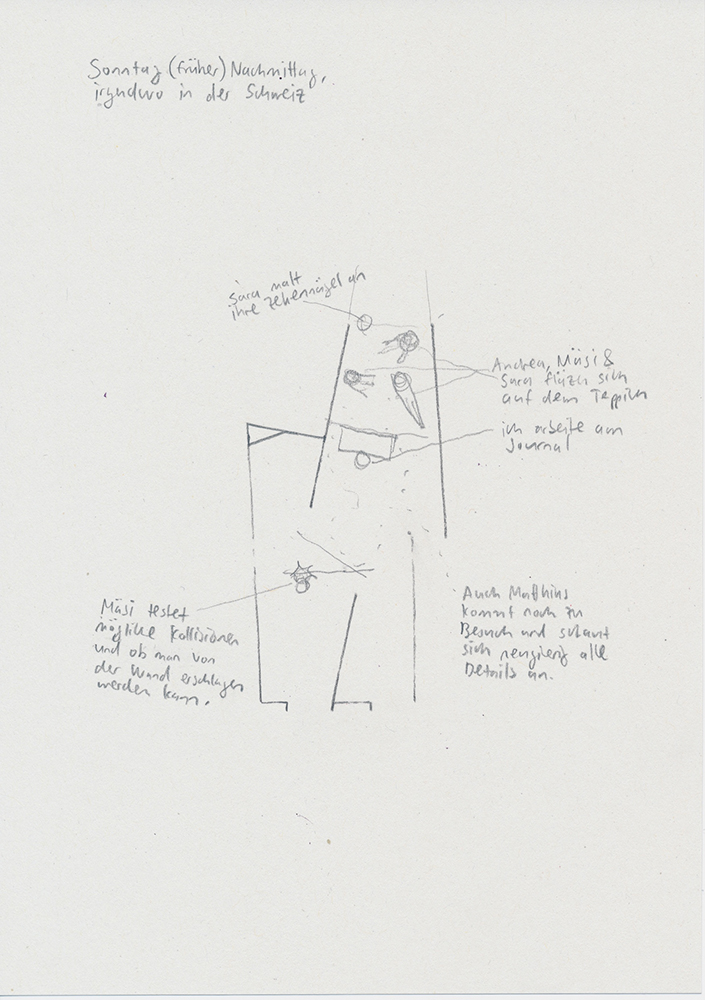 Sonntag (früher) Nachmittag,
irgendwo in der Schweiz
Sara malt
ihre Zehennägel an
Andrea, Mäsi &
Sara fläzen sich
auf dem Teppich
ich arbeite am
Journal
Mäsi testet
mögliche Kollisionen
und ob man von
der Wand erschlagen
werden kann.
Auch Matthias
kommt noch zu
Besuch und schaut
sich neugierig alle
Details an.